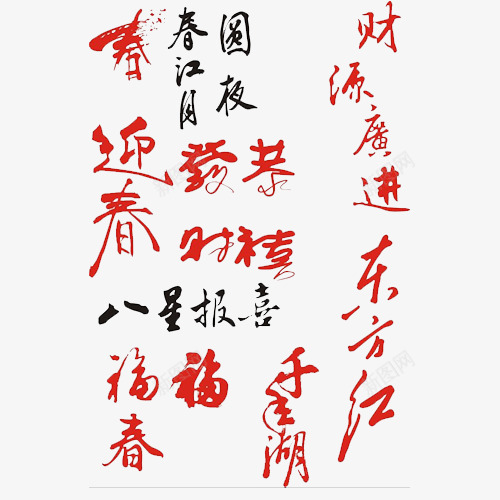 春
春江月
圆夜
财源廣进
迎春
恭禧
發财
东方红
八星报喜
福
春
福
千岛湖